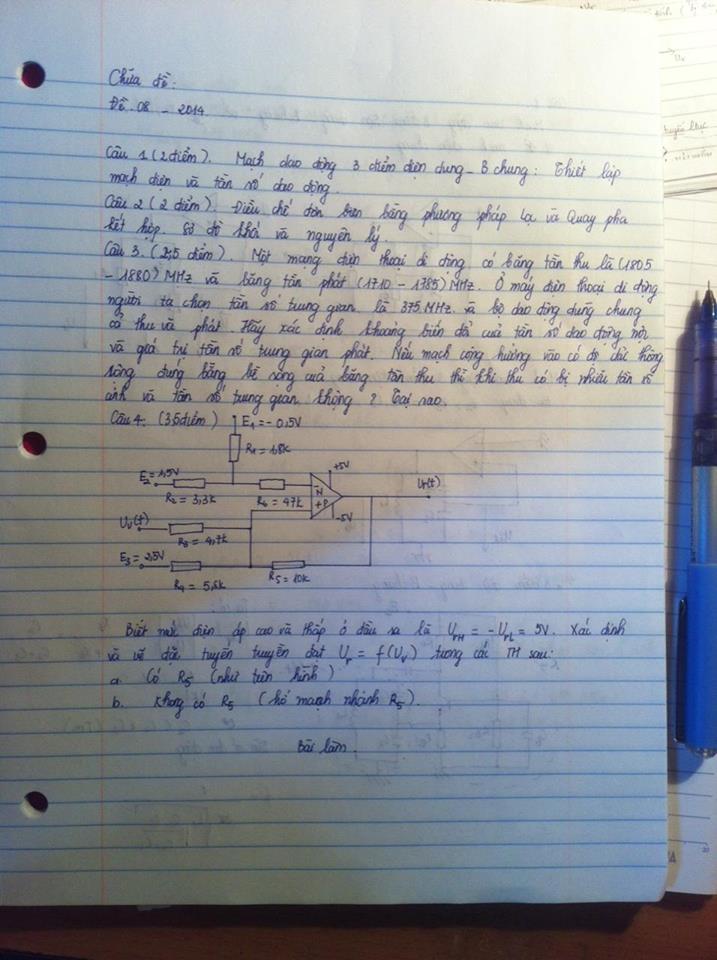 Chữa đề:
Đề 08 - 2014
Câu 1 (2 điểm). Mạch dao động 3 điểm điện dung - B chung: Thiết lập
mạch điện và tần số dao động.
Câu 2 (2 điểm). Điều chế đơn biên bằng phương pháp Lọc và Quay pha
kết hợp. Sơ đồ khối và nguyên lý.
Câu 3. (2,5 điểm). Một mạng điện thoại di động có băng tần thu là (1805
- 1880) MHz và băng tần phát (1710 - 1785) MHz. Ở máy điện thoại di động
người ta chọn tần số trung gian là 375 MHz và bộ dao động dùng chung
cả thu và phát. Hãy xác định khoảng biến đổi của tần số dao động nội
và giá trị tần số trung gian phát. Nếu mạch cộng hưởng vào có độ dải thông
đúng bằng bề rộng của băng tần thu thì khi thu có bị nhiễu tần số
ảnh và tần số trung gian không? Tại sao.
Câu 4: (3,5 điểm)
E1 = - 0,5V
R1 = 1,8k
+5V
E2 = 1,5V
N
Ur(t)
R2 = 3,3k
R6 = 47k
+P
-5V
Uv(t)
R3 = 4,7k
E3 = 2,5V
R4 = 5,6k
R5 = 10k
Biết mức điện áp cao và thấp ở đầu ra là UrH = - UrL = 5V. Xác định
và vẽ đặc tuyến truyền đạt Ur = f(Uv) trong các TH sau:
a. Có R5 (như trên hình)
b. Không có R5 (hở mạch nhánh R5).
Bài làm.